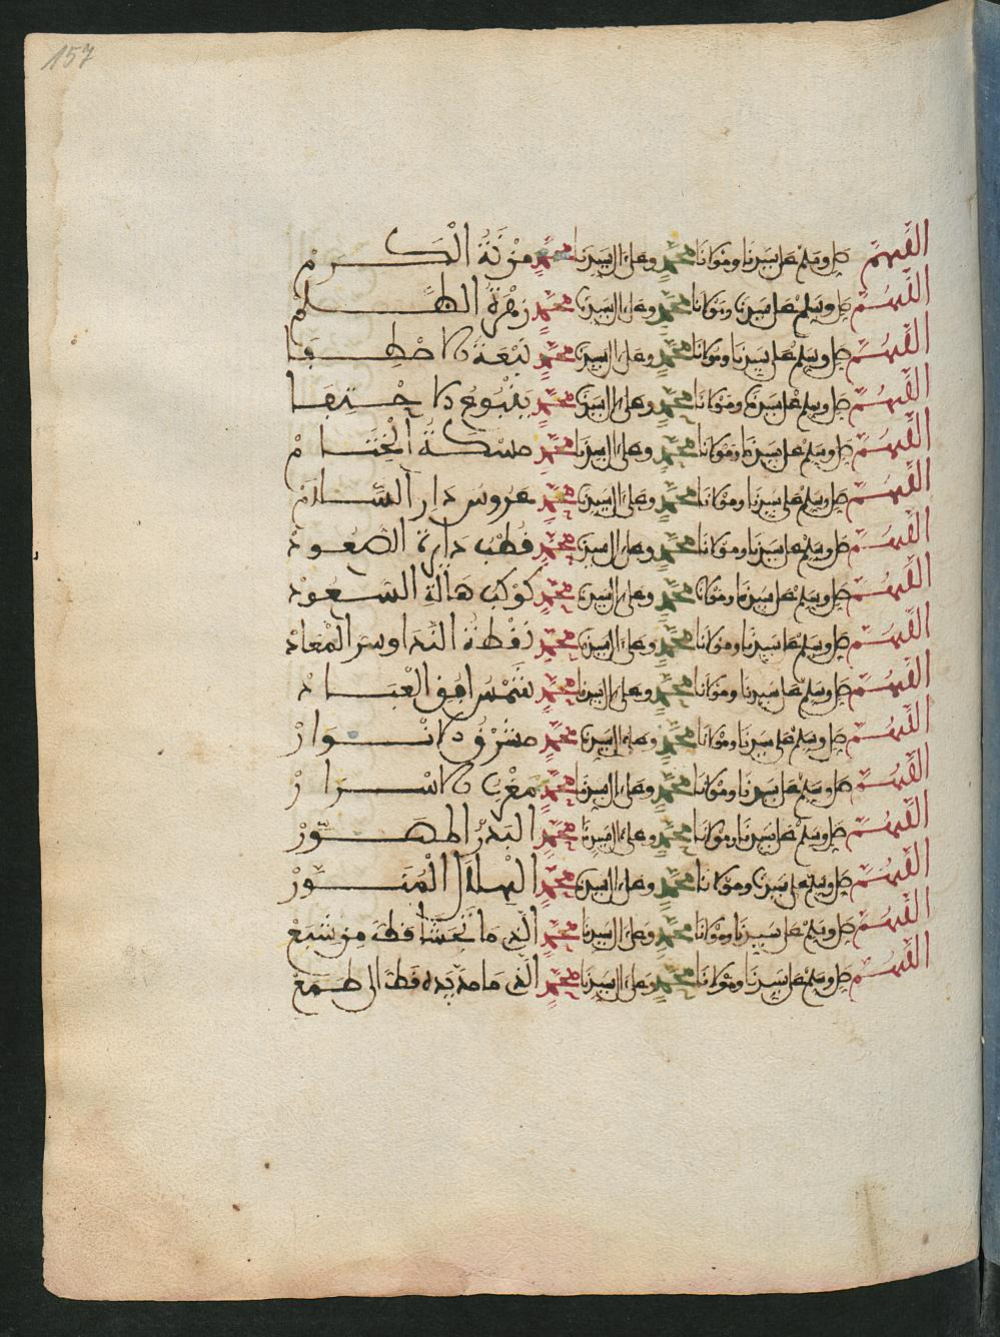 157
اللهم صل وسلم على سيدنا ومولانا محمد وعلى ال سيدنا محمد مزنة الكرم
اللهم صل وسلم على سيدنا ومولانا محمد وعلى ال سيدنا محمد زهرة الظلم
اللهم صل وسلم على سيدنا ومولانا محمد وعلى ال سيدنا محمد نبعة الاصطفا
اللهم صل وسلم على سيدنا ومولانا محمد وعلى ال سيدنا محمد ينبوع الاحتفا
اللهم صل وسلم على سيدنا ومولانا محمد وعلى ال سيدنا محمد مسكة الختام
اللهم صل وسلم على سيدنا ومولانا محمد وعلى ال سيدنا محمد عروس دار السلام
اللهم صل وسلم على سيدنا ومولانا محمد وعلى ال سيدنا محمد قطب دايرة الصعود
اللهم صل وسلم على سيدنا ومولانا محمد وعلى ال سيدنا محمد كوكب هالة السعود
اللهم صل وسلم على سيدنا ومولانا محمد وعلى ال سيدنا محمد نقطة الندا وسر المعاد
اللهم صل وسلم على سيدنا ومولانا محمد وعلى ال سيدنا محمد شمس افق العباد
اللهم صل وسلم على سيدنا ومولانا محمد وعلى ال سيدنا محمد مشرق الانوار
اللهم صل وسلم على سيدنا ومولانا محمد وعلى ال سيدنا محمد مغرب الاسرار
اللهم صل وسلم على سيدنا ومولانا محمد وعلى ال سيدنا محمد البدر
اللهم صل وسلم على سيدنا ومولانا محمد وعلى ال سيدنا محمد الهلال المنور
اللهم صل وسلم على سيدنا ومولانا محمد وعلى ال سيدنا محمد الذي ما تجشا قط من شبع
اللهم صل وسلم على سيدنا ومولانا محمد وعلى ال سيدنا محمد الذي ما مد يده قط الى طمع